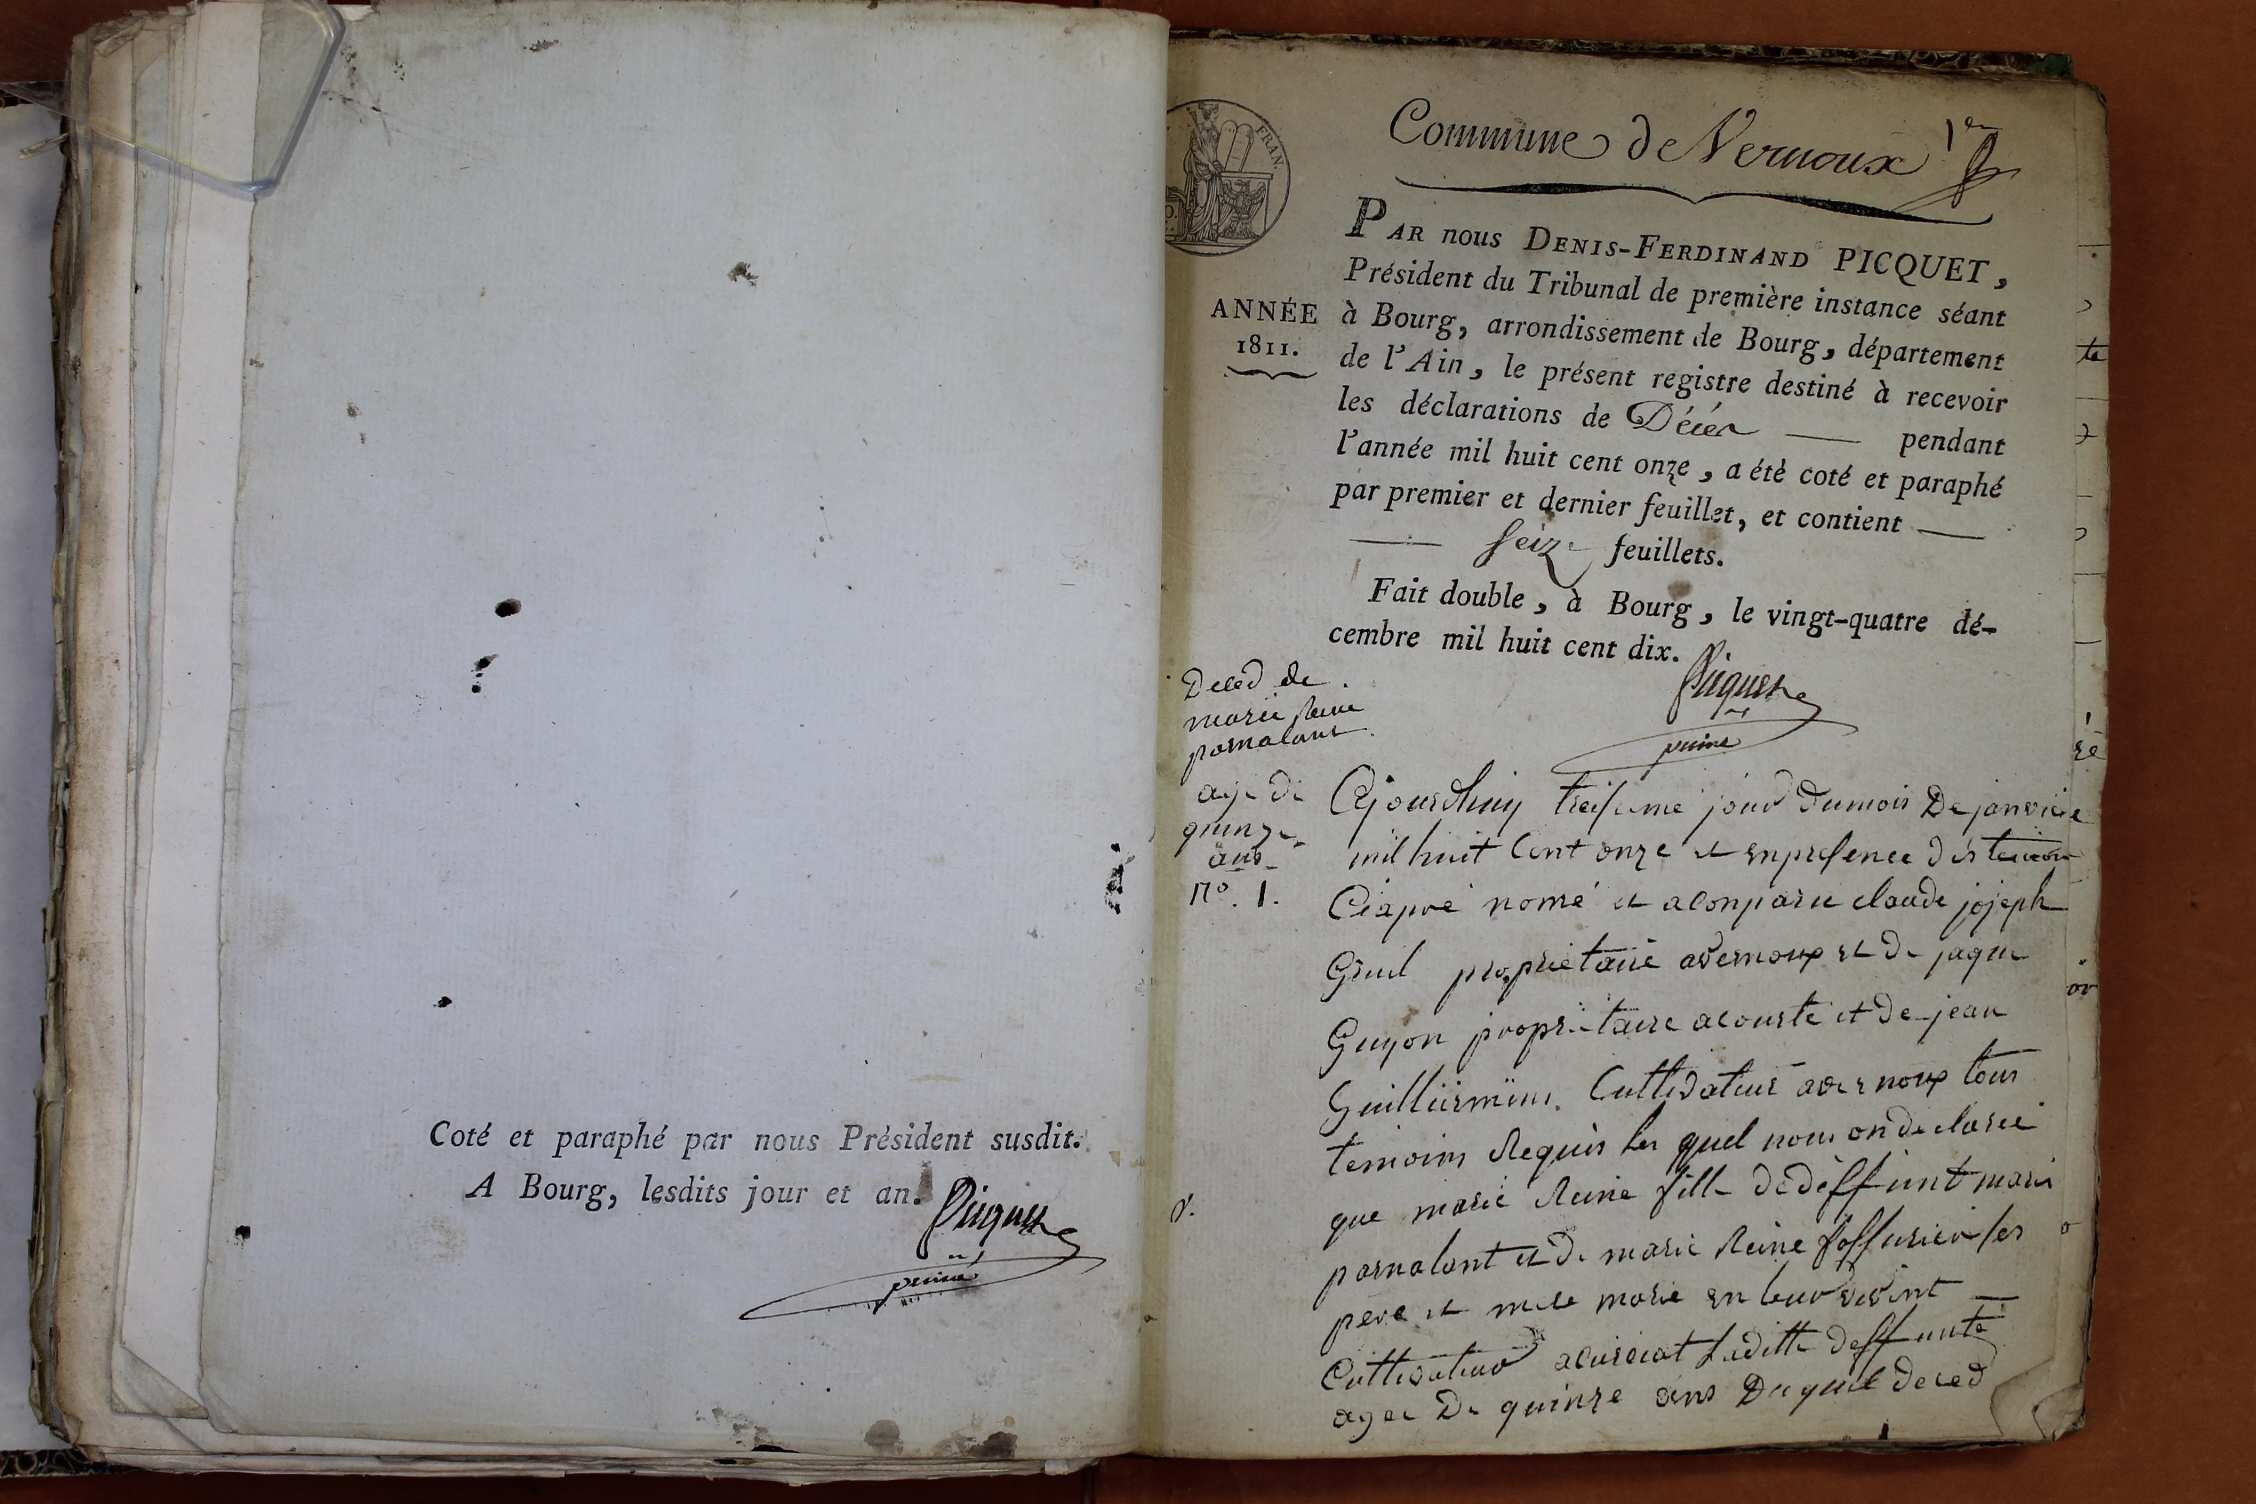 Coté et paraphé par nous Président susdit.
A Bourg, lesdits jour et an.
Picquet
FRAN.
Commune de Vernoux 1er
PAR nous DENIS-FERDINAND PICQUET,
Président du Tribunal de première instance séant
à Bourg, arrondissement de Bourg, département
de l'Ain, le présent registre destiné à recevoir
les déclarations de Décès — pendant
l'année mil huit cent onze, a été coté et paraphé
par premier et dernier feuillet, et contient —
— seize feuillets.
Fait double, à Bourg, le vingt-quatre dé-
cembre mil huit cent dix.
Picquet
ANNÉE
1811.
Deced de
marie Reine
parnalant
age de
quinze
ans
No. 1.
Ajourdhuy treisieme jour dumois De janvier
mil huit Cent onze et enpresence des temoin
Ciapre nomé et aconparu claude jojeph
propriétaire avernoux et De jaque
Guyon propriétaire acourte et De jean
Guilliermin Cultivateur avernoux tous
temoins Requis les quel nous on declaree
que marie Reine fille De deffunt marie
parnalant et De marie Reine les
pere et mere marie en leur vivint —
Cultivateur acurciat Laditte deffunte
agee De quinze ans Duquel deced